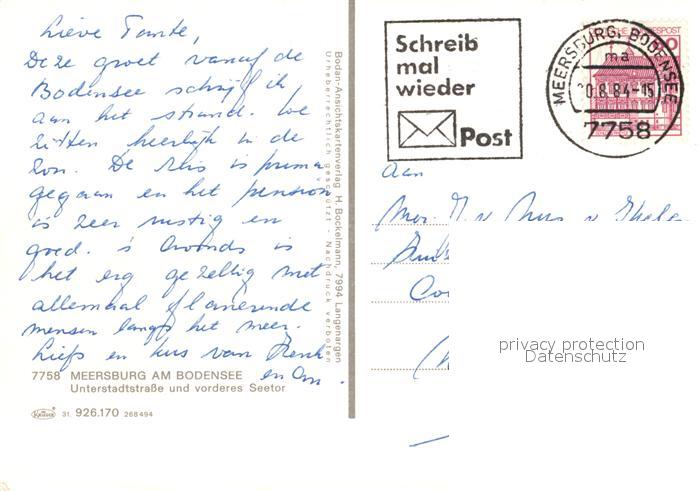 Lieve Tante,
Deze groet vanaf de
Bodensee schrijf ik
aan het strand. We
zitten heerlijk in de
zon. De reis is prima
gegaan en het pension
is zeer rustig en
goed. 's Avonds is
het erg gezellig met
allemaal flanerende
mensen langs het meer.
Liefs en kus van Henk
en An.
7758 MEERSBURG AM BODENSEE
Unterstadtstraße und vorderes Seetor
Krüger 31. 926.170 268494
Bodan-Ansichtskartenverlag H. Bockelmann 7994 Langenargen
Urheberrechtlich geschützt - Nachdruck verboten
Schreib
mal
wieder
Post
MEERSBURG, BODENSEE
ma
0.8.84-15
7758
Aan
Mev.
Co
privacy protection
Datenschutz